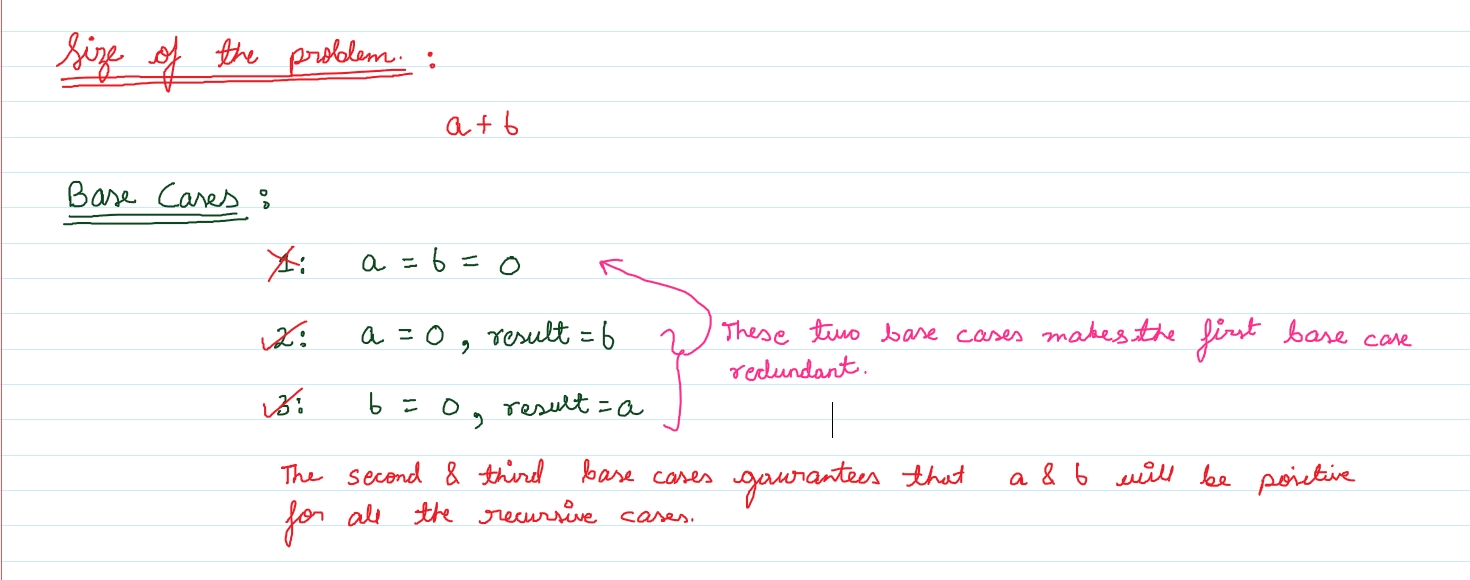 Size of the problem. :
a + b
Base Cases :
1: a = b = 0
2: a = 0, result = b
These two base cases makes the first base case
redundant.
3: b = 0, result = a
The second & third base cases gaurantees that a & b will be positive
for all the recursive cases.